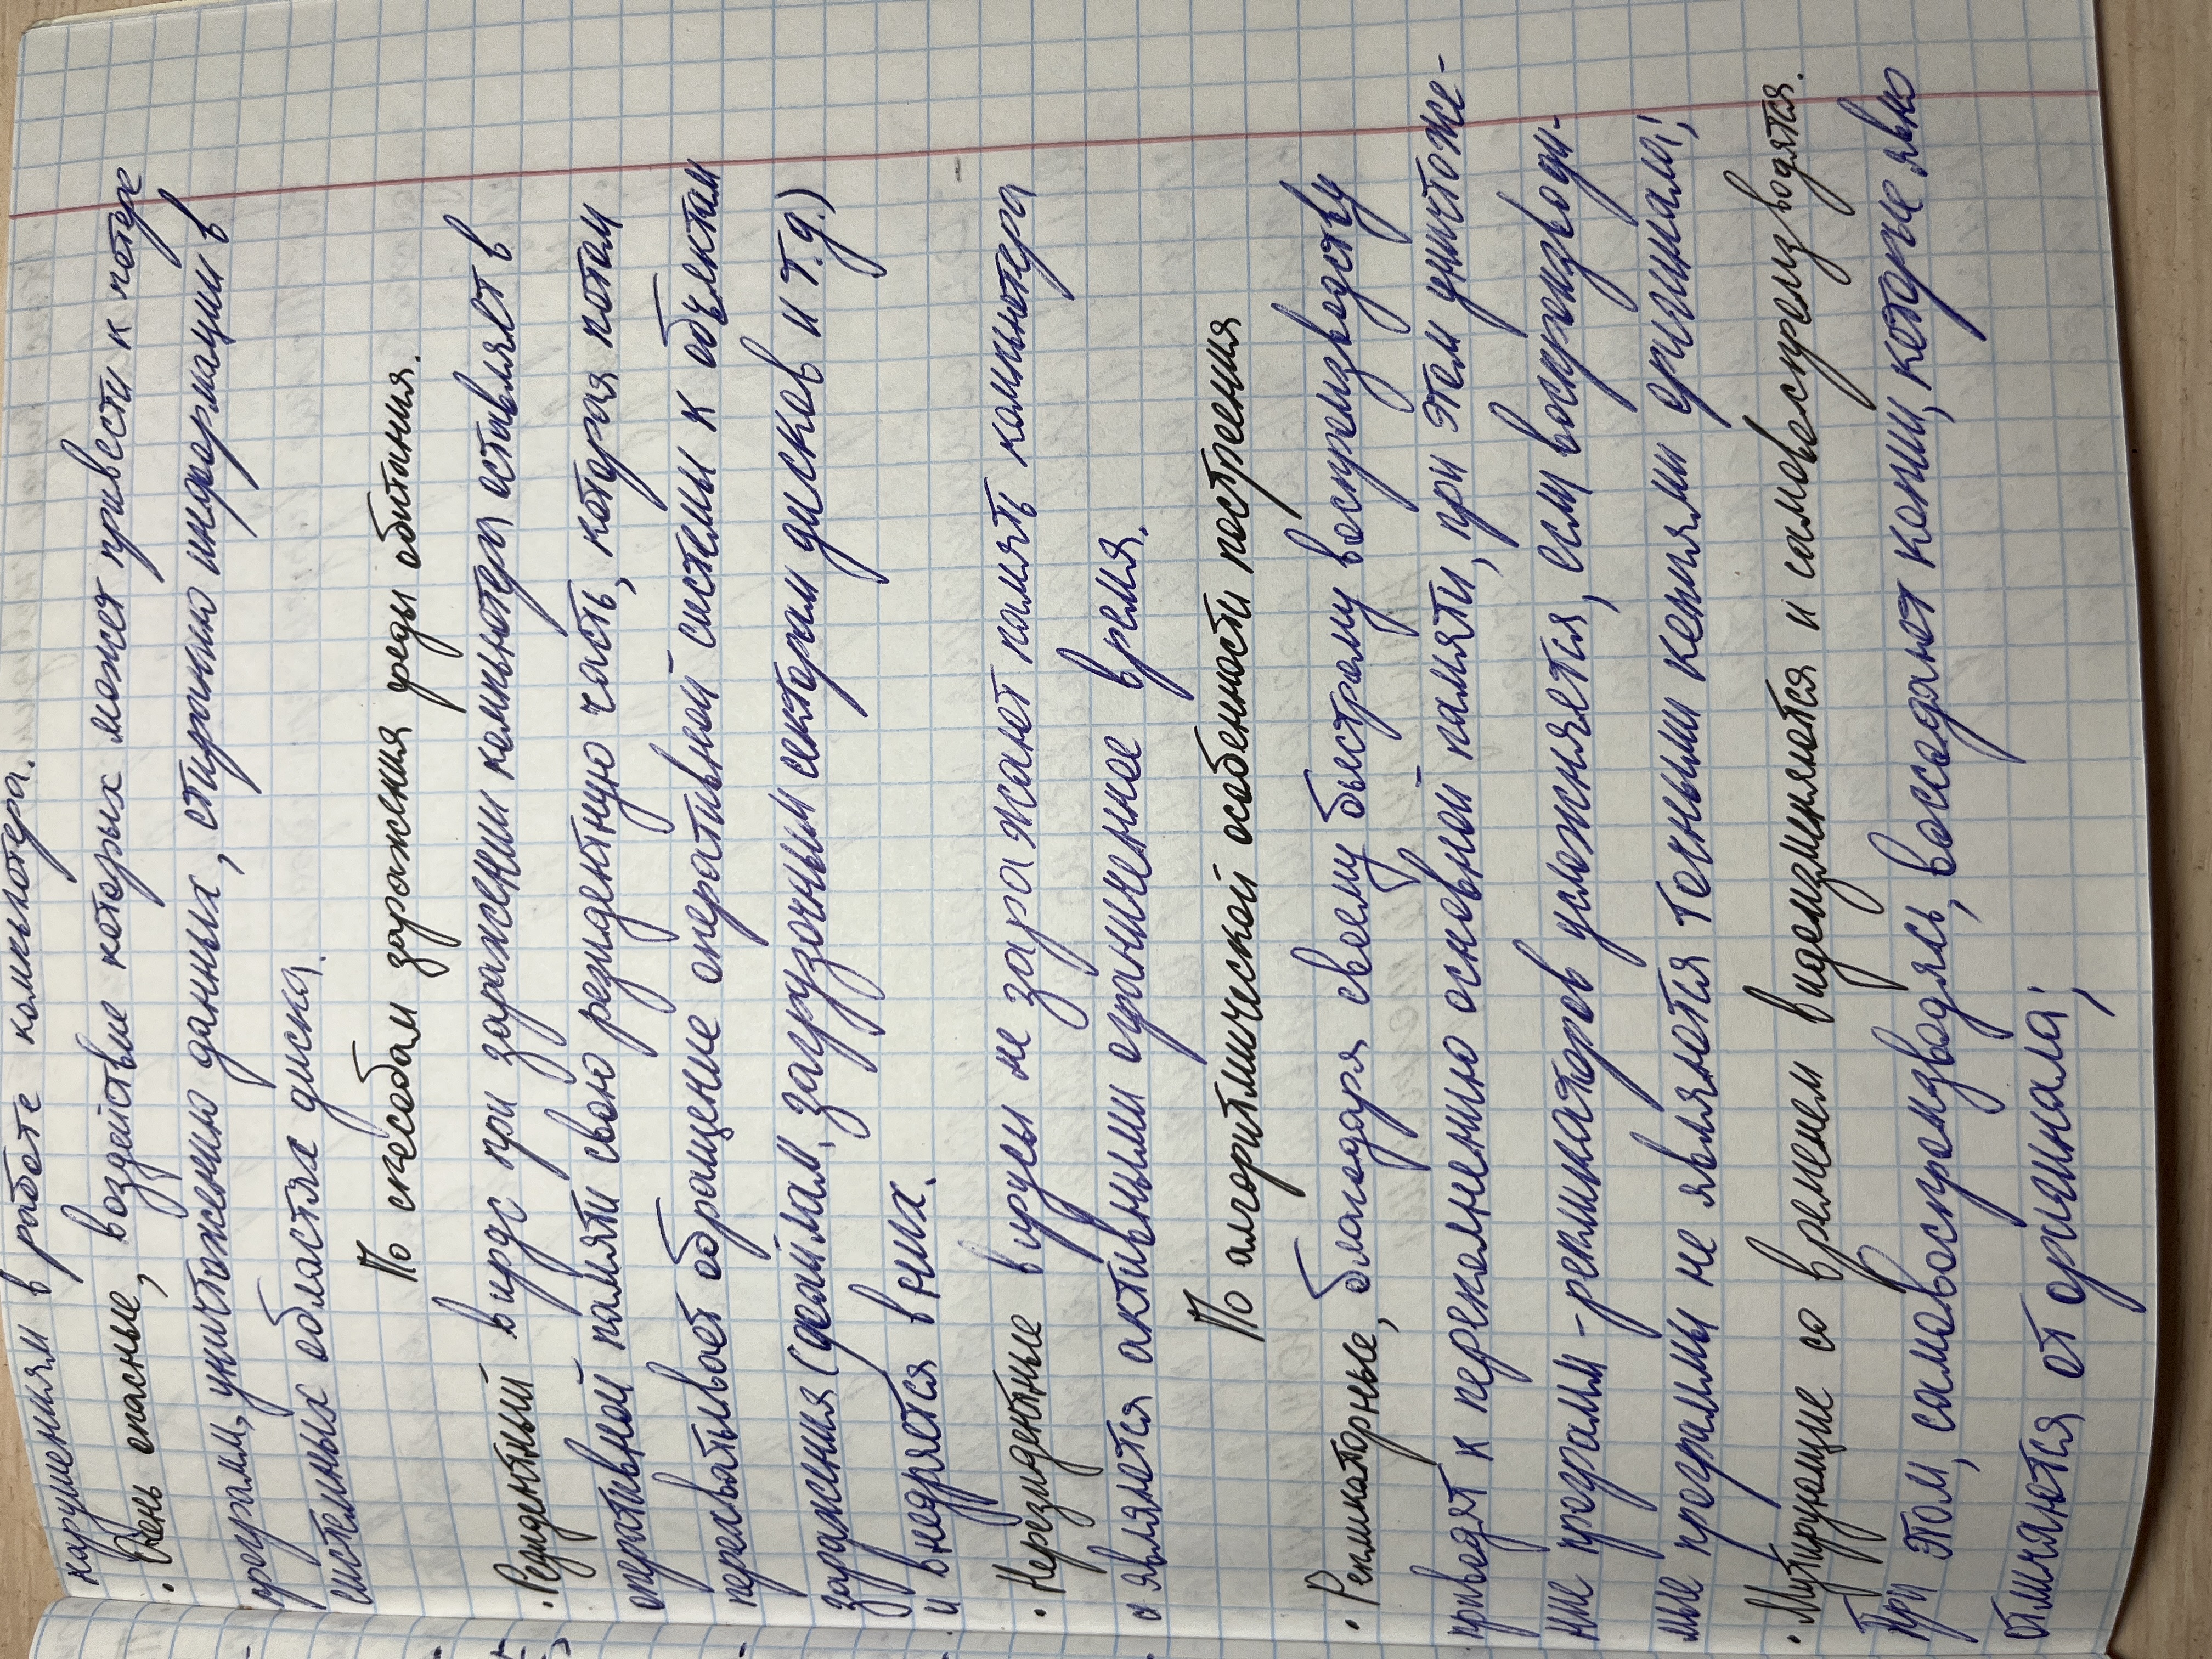 нарушениям в работе компьютера.
• Очень опасные, воздействие которых может привести к потере
программ, уничтожению данных, стиранию информации в
системных областях диска.
По способам заражения среды обитания.
• Резидентный вирус при заражении компьютера оставляет в
оперативной памяти свою резидентную часть, которая потом
перехватывает обращение оперативной системы к объектам
заражения (файлам, загрузочным секторам дисков и т.д.)
и внедряется в них.
• Нерезидентные вирусы не заражают память компьютера
и являются активными ограниченное время.
По алгоритмической особенности построения
• Репликаторные, благодаря своему быстрому воспроизводству
приводят к переполнению основной памяти, при этом уничтоже-
ние программ-репликаторов усложняется, если воспроизводи-
мые программы не являются точными копиями оригинала;
• Мутирующие со временем видоизменяются и самовоспроизводятся.
При этом, самовоспроизводясь, воссоздают копии, которые явно
отличаются от оригинала;